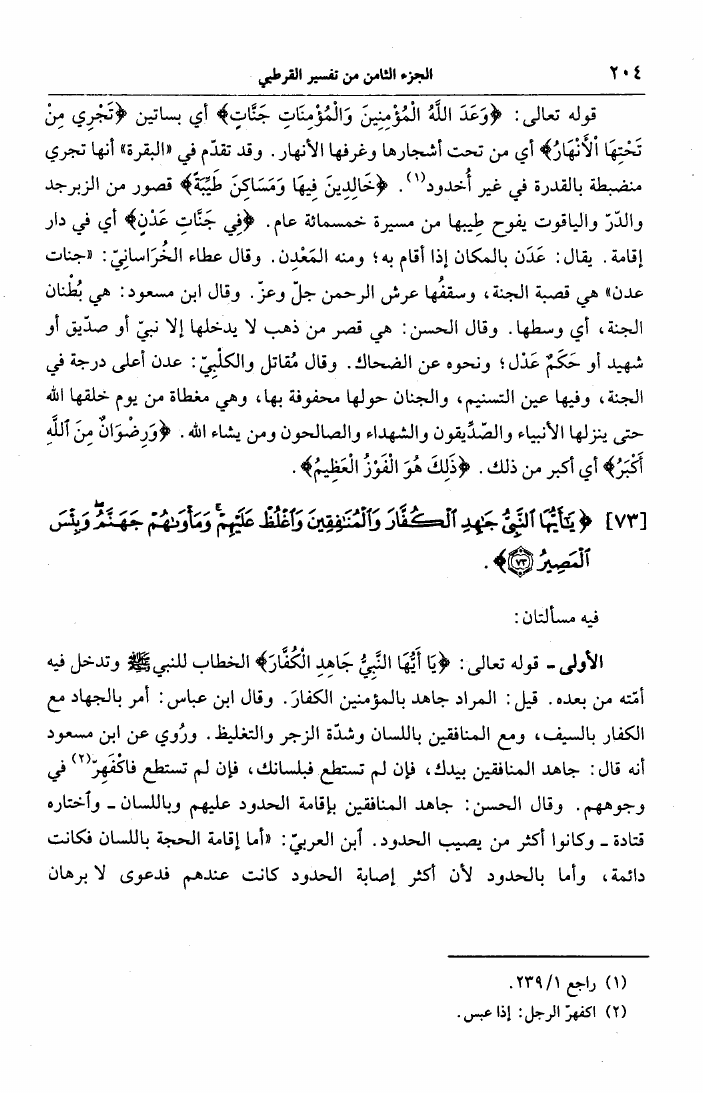 ٢٠٤ الجزء الثامن من تفسير القرطبي
قوله تعالى: ﴿وَعَدَ اللَّهُ الْمُؤْمِنِينَ وَالْمُؤْمِنَاتِ جَنَّاتٍ﴾ أي بساتين ﴿تَجْرِي مِنْ
تَحْتِهَا الْأَنْهَارُ﴾ أي من تحت أشجارها وغرفها الأنهار. وقد تقدّم في «البقرة» أنها تجري
منضبطة بالقدرة في غير أُخدود(١). ﴿خَالِدِينَ فِيهَا وَمَسَاكِنَ طَيِّبَةً﴾ قصور من الزبرجد
والدّرّ والياقوت يفوح طِيبها من مسيرة خمسمائة عام. ﴿فِي جَنَّاتِ عَدْنٍ﴾ أي في دار
إقامة. يقال: عَدَن بالمكان إذا أقام به؛ ومنه المَعْدِن. وقال عطاء الخُرَاسانِيّ: «جنات
عدن» هي قصبة الجنة، وسقفُها عرش الرحمن جلّ وعزّ. وقال ابن مسعود: هي بُطْنان
الجنة، أي وسطها. وقال الحسن: هي قصر من ذهب لا يدخلها إلا نبيّ أو صدّيق أو
شهيد أو حَكَمٌ عَدْل؛ ونحوه عن الضحاك. وقال مُقاتل والكلْبِيّ: عدن أعلى درجة في
الجنة، وفيها عين التسنيم، والجنان حولها محفوفة بها، وهي مغطاة من يوم خلقها الله
حتى ينزلها الأنبياء والصّدِّيقون والشهداء والصالحون ومن يشاء الله. ﴿وَرِضْوَانٌ مِنَ ٱللَّهِ
أَكْبَرُ﴾ أي أكبر من ذلك. ﴿ذَلِكَ هُوَ الْفَوْزُ الْعَظِيمُ﴾.
[٧٣] ﴿يَٰٓأَيُّهَا ٱلنَّبِىُّ جَٰهِدِ ٱلْكُفَّارَ وَٱلْمُنَٰفِقِينَ وَٱغْلُظْ عَلَيْهِمْ ۚ وَمَأْوَىٰهُمْ جَهَنَّمُ ۖ وَبِئْسَ
ٱلْمَصِيرُ ﴿٧٣﴾﴾.
فيه مسألتان:
الأولى - قوله تعالى: ﴿يَا أَيُّهَا النَّبِيُّ جَاهِدِ الْكُفَّارَ﴾ الخطاب للنبي ﷺ وتدخل فيه
أمّته من بعده. قيل: المراد جاهد بالمؤمنين الكفارَ. وقال ابن عباس: أمر بالجهاد مع
الكفار بالسيف، ومع المنافقين باللسان وشدّة الزجر والتغليظ. ورُوي عن ابن مسعود
أنه قال: جاهد المنافقين بيدك، فإن لم تستطع فبلسانك، فإن لم تستطع فاكْفَهِرّ(٢) في
وجوههم. وقال الحسن: جاهد المنافقين بإقامة الحدود عليهم وباللسان - وٱختاره
قتادة - وكانوا أكثر من يصيب الحدود. ٱبن العربيّ: «أما إقامة الحجة باللسان فكانت
دائمة، وأما بالحدود لأن أكثر إصابة الحدود كانت عندهم فدعوى لا برهان
(١) راجع ٢٣٩/١.
(٢) اكفهرّ الرجل: إذا عبس.